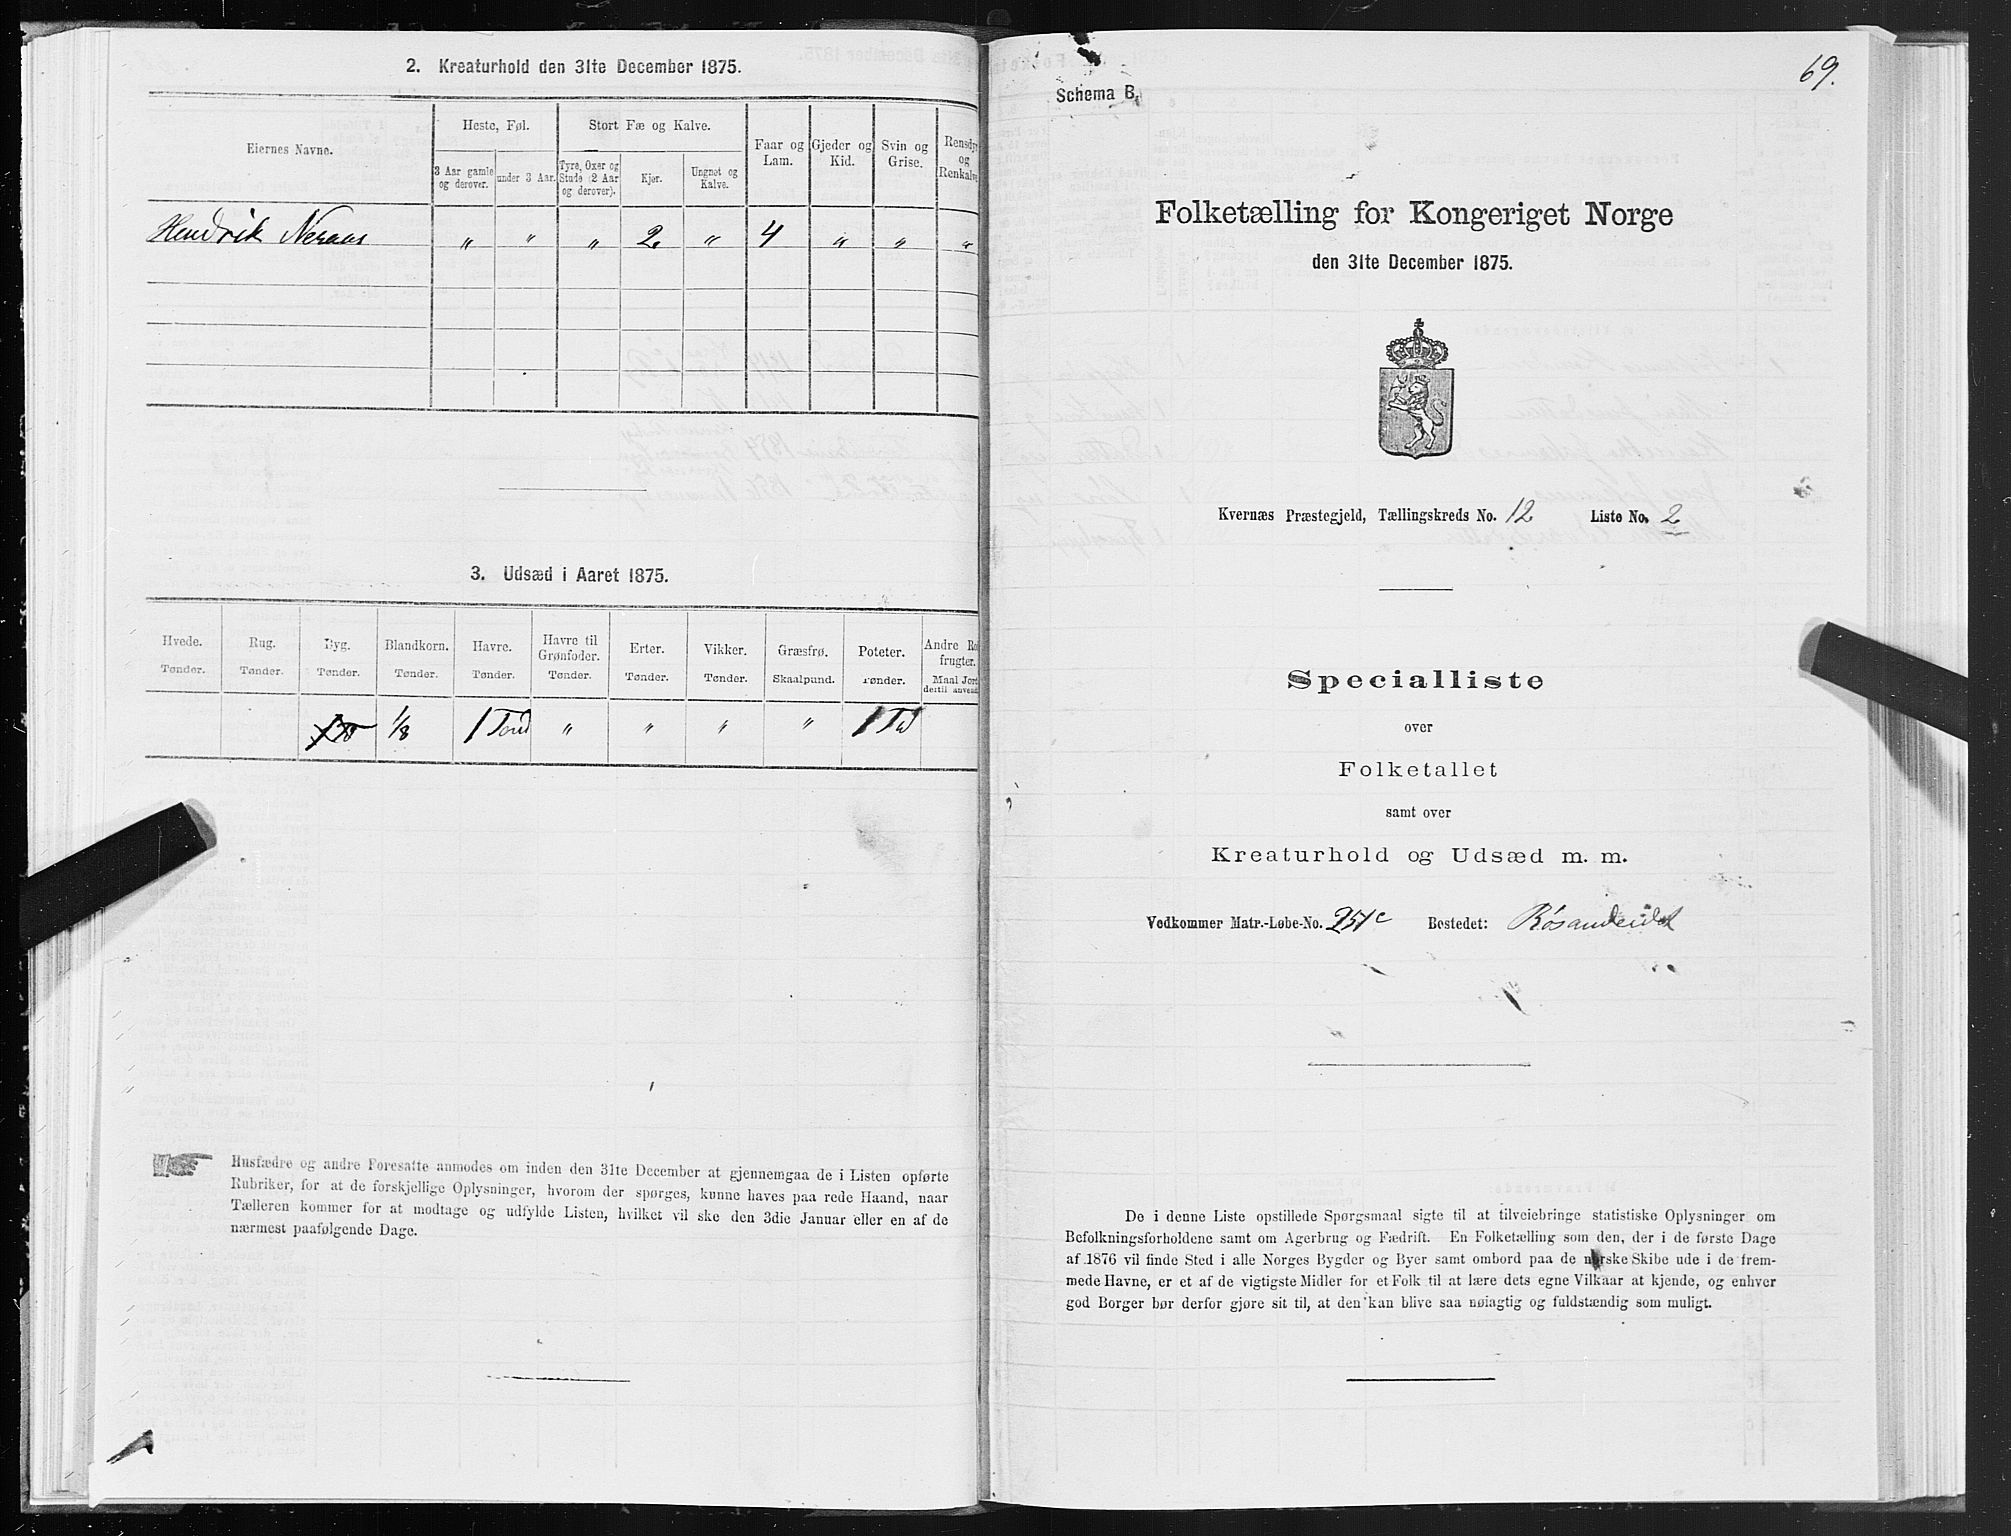 2. Kreaturhold den 31te December 1875.
Eiernes Navne.
Heste, Føl.
Stort Fæ og Kalve.
3 Aar gamle og derover.
under 3 Aar.
Tyre, Oxer og Stude (2 Aar og derover).
Kjør.
Ungnøt og Kalve.
Faar og Lam.
Gjeder og Kid.
Svin og Grise.
Rensdyr og Renkalve
Hendrik Neraas " " " 2 " 4 " " "
3. Udsæd i Aaret 1875.
Hvede. Rug. Byg. Blandkorn. Havre. Havre til Grønfoder. Erter. Vikker. Græsfrø. Poteter. Andre Ro frugter.
Tønder. Tønder. Tønder. Tønder. Tønder. Tønder. Tønder. Tønder. Skaalpund. Tønder. Maal Jord dertil anvend
1/8 1 Tønd " " " " 1 Td
Husfædre og andre Foresatte anmodes om inden den 31te December at gjennemgaa de i Listen opførte
Rubriker, for at de forskjellige Oplysninger, hvorom der spørges, kunne haves paa rede Haand, naar
Tælleren kommer for at modtage og udfylde Listen, hvilket vil ske den 3die Januar eller en af de
nærmest paafølgende Dage.
69.
Schema B.
Folketælling for Kongeriget Norge
den 31te December 1875.
Kvernæs Præstegjeld, Tællingskreds No. 12 Liste No. 2
Specialliste
over
Folketallet
samt over
Kreaturhold og Udsæd m. m.
Vedkommer Matr.-Løbe-No. 251c Bostedet: Røsandeidet
De i denne Liste opstillede Spørgsmaal sigte til at tilveiebringe statistiske Oplysninger om
Befolkningsforholdene samt om Agerbrug og Fædrift. En Folketælling som den, der i de første Dage
af 1876 vil finde Sted i alle Norges Bygder og Byer samt ombord paa de norske Skibe ude i de frem-
mede Havne, er et af de vigtigste Midler for et Folk til at lære dets egne Vilkaar at kjende, og enhver
god Borger bør derfor gjøre sit til, at den kan blive saa nøiagtig og fuldstændig som muligt.